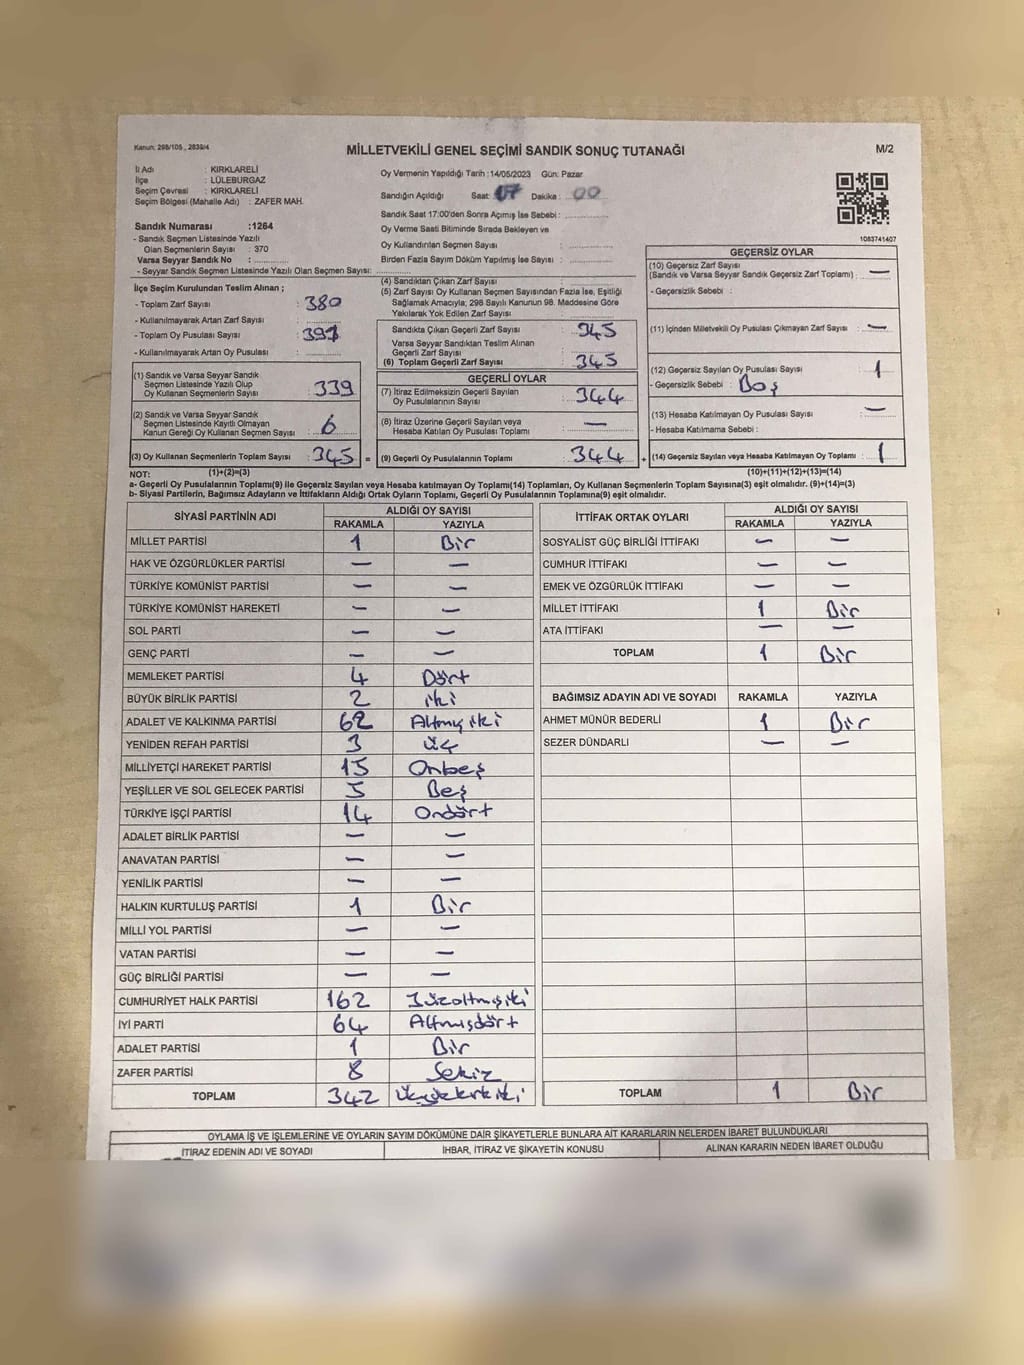 Kanun: 298/105 , 2839/4
MİLLETVEKİLİ GENEL SEÇİMİ SANDIK SONUÇ TUTANAĞI
M/2
İl Adı : KIRKLARELİ
İlçe : LÜLEBURGAZ
Seçim Çevresi : KIRKLARELİ
Seçim Bölgesi (Mahalle Adı) : ZAFER MAH.
Sandık Numarası :1264
- Sandık Seçmen Listesinde Yazılı
Olan Seçmenlerin Sayısı : 370
Varsa Seyyar Sandık No :
- Seyyar Sandık Seçmen Listesinde Yazılı Olan Seçmen Sayısı:
Oy Vermenin Yapıldığı Tarih : 14/05/2023 Gün: Pazar
Sandığın Açıldığı Saat: 17 Dakika : 00
Sandık Saat 17:00'den Sonra Açılmış İse Sebebi :
Oy Verme Saati Bitiminde Sırada Bekleyen ve
Oy Kullandırılan Seçmen Sayısı :
Birden Fazla Sayım Döküm Yapılmış İse Sayısı :
1083741407
İlçe Seçim Kurulundan Teslim Alınan ;
- Toplam Zarf Sayısı : 380
- Kullanılmayarak Artan Zarf Sayısı :
- Toplam Oy Pusulası Sayısı : 391
- Kullanılmayarak Artan Oy Pusulası :
(1) Sandık ve Varsa Seyyar Sandık
Seçmen Listesinde Yazılı Olup
Oy Kullanan Seçmenlerin Sayısı : 339
(2) Sandık ve Varsa Seyyar Sandık
Seçmen Listesinde Kayıtlı Olmayan
Kanun Gereği Oy Kullanan Seçmen Sayısı : 6
(3) Oy Kullanan Seçmenlerin Toplam Sayısı : 345 =
(4) Sandıktan Çıkan Zarf Sayısı :
(5) Zarf Sayısı Oy Kullanan Seçmen Sayısından Fazla İse, Eşitliği
Sağlamak Amacıyla; 298 Sayılı Kanunun 98. Maddesine Göre
Yakılarak Yok Edilen Zarf Sayısı :
Sandıkta Çıkan Geçerli Zarf Sayısı : 345
Varsa Seyyar Sandıktan Teslim Alınan
Geçerli Zarf Sayısı :
(6) Toplam Geçerli Zarf Sayısı : 345
GEÇERLİ OYLAR
(7) İtiraz Edilmeksizin Geçerli Sayılan
Oy Pusulalarının Sayısı : 344
(8) İtiraz Üzerine Geçerli Sayılan veya
Hesaba Katılan Oy Pusulası Toplamı : —
(9) Geçerli Oy Pusulalarının Toplamı : 344 +
GEÇERSİZ OYLAR
(10) Geçersiz Zarf Sayısı
(Sandık ve Varsa Seyyar Sandık Geçersiz Zarf Toplamı) : —
- Geçersizlik Sebebi :
(11) İçinden Milletvekili Oy Pusulası Çıkmayan Zarf Sayısı : —
(12) Geçersiz Sayılan Oy Pusulası Sayısı : 1
- Geçersizlik Sebebi : Boş
(13) Hesaba Katılmayan Oy Pusulası Sayısı : —
- Hesaba Katılmama Sebebi :
(14) Geçersiz Sayılan veya Hesaba Katılmayan Oy Toplamı : 1
NOT: (1)+(2)=(3) (10)+(11)+(12)+(13)=(14)
a- Geçerli Oy Pusulalarının Toplamı(9) ile Geçersiz Sayılan veya Hesaba Katılmayan Oy Toplamı(14) Toplamları, Oy Kullanan Seçmenlerin Toplam Sayısına(3) eşit olmalıdır. (9)+(14)=(3)
b- Siyasi Partilerin, Bağımsız Adayların ve İttifakların Aldığı Ortak Oyların Toplamı, Geçerli Oy Pusulalarının Toplamına(9) eşit olmalıdır.
SİYASİ PARTİNİN ADI ALDIĞI OY SAYISI
RAKAMLA YAZIYLA
MİLLET PARTİSİ 1 Bir
HAK VE ÖZGÜRLÜKLER PARTİSİ — —
TÜRKİYE KOMÜNİST PARTİSİ — —
TÜRKİYE KOMÜNİST HAREKETİ — —
SOL PARTİ — —
GENÇ PARTİ — —
MEMLEKET PARTİSİ 4 Dört
BÜYÜK BİRLİK PARTİSİ 2 iki
ADALET VE KALKINMA PARTİSİ 62 Altmış iki
YENİDEN REFAH PARTİSİ 3 üç
MİLLİYETÇİ HAREKET PARTİSİ 15 Onbeş
YEŞİLLER VE SOL GELECEK PARTİSİ 5 Beş
TÜRKİYE İŞÇİ PARTİSİ 14 Ondört
ADALET BİRLİK PARTİSİ — —
ANAVATAN PARTİSİ — —
YENİLİK PARTİSİ — —
HALKIN KURTULUŞ PARTİSİ 1 Bir
MİLLİ YOL PARTİSİ — —
VATAN PARTİSİ — —
GÜÇ BİRLİĞİ PARTİSİ — —
CUMHURİYET HALK PARTİSİ 162 Yüzaltmışiki
İYİ PARTİ 64 Altmışdört
ADALET PARTİSİ 1 Bir
ZAFER PARTİSİ 8 Sekiz
TOPLAM 342 Üçyüzkırkiki
İTTİFAK ORTAK OYLARI ALDIĞI OY SAYISI
RAKAMLA YAZIYLA
SOSYALİST GÜÇ BİRLİĞİ İTTİFAKI — —
CUMHUR İTTİFAKI — —
EMEK VE ÖZGÜRLÜK İTTİFAKI — —
MİLLET İTTİFAKI 1 Bir
ATA İTTİFAKI — —
TOPLAM 1 Bir
BAĞIMSIZ ADAYIN ADI VE SOYADI RAKAMLA YAZIYLA
AHMET MÜNÜR BEDERLİ 1 Bir
SEZER DÜNDARLI — —
TOPLAM 1 Bir
OYLAMA İŞ VE İŞLEMLERİNE VE OYLARIN SAYIM DÖKÜMÜNE DAİR ŞİKAYETLERLE BUNLARA AİT KARARLARIN NELERDEN İBARET BULUNDUKLARI
İTİRAZ EDENİN ADI VE SOYADI İHBAR, İTİRAZ VE ŞİKAYETİN KONUSU ALINAN KARARIN NEDEN İBARET OLDUĞU